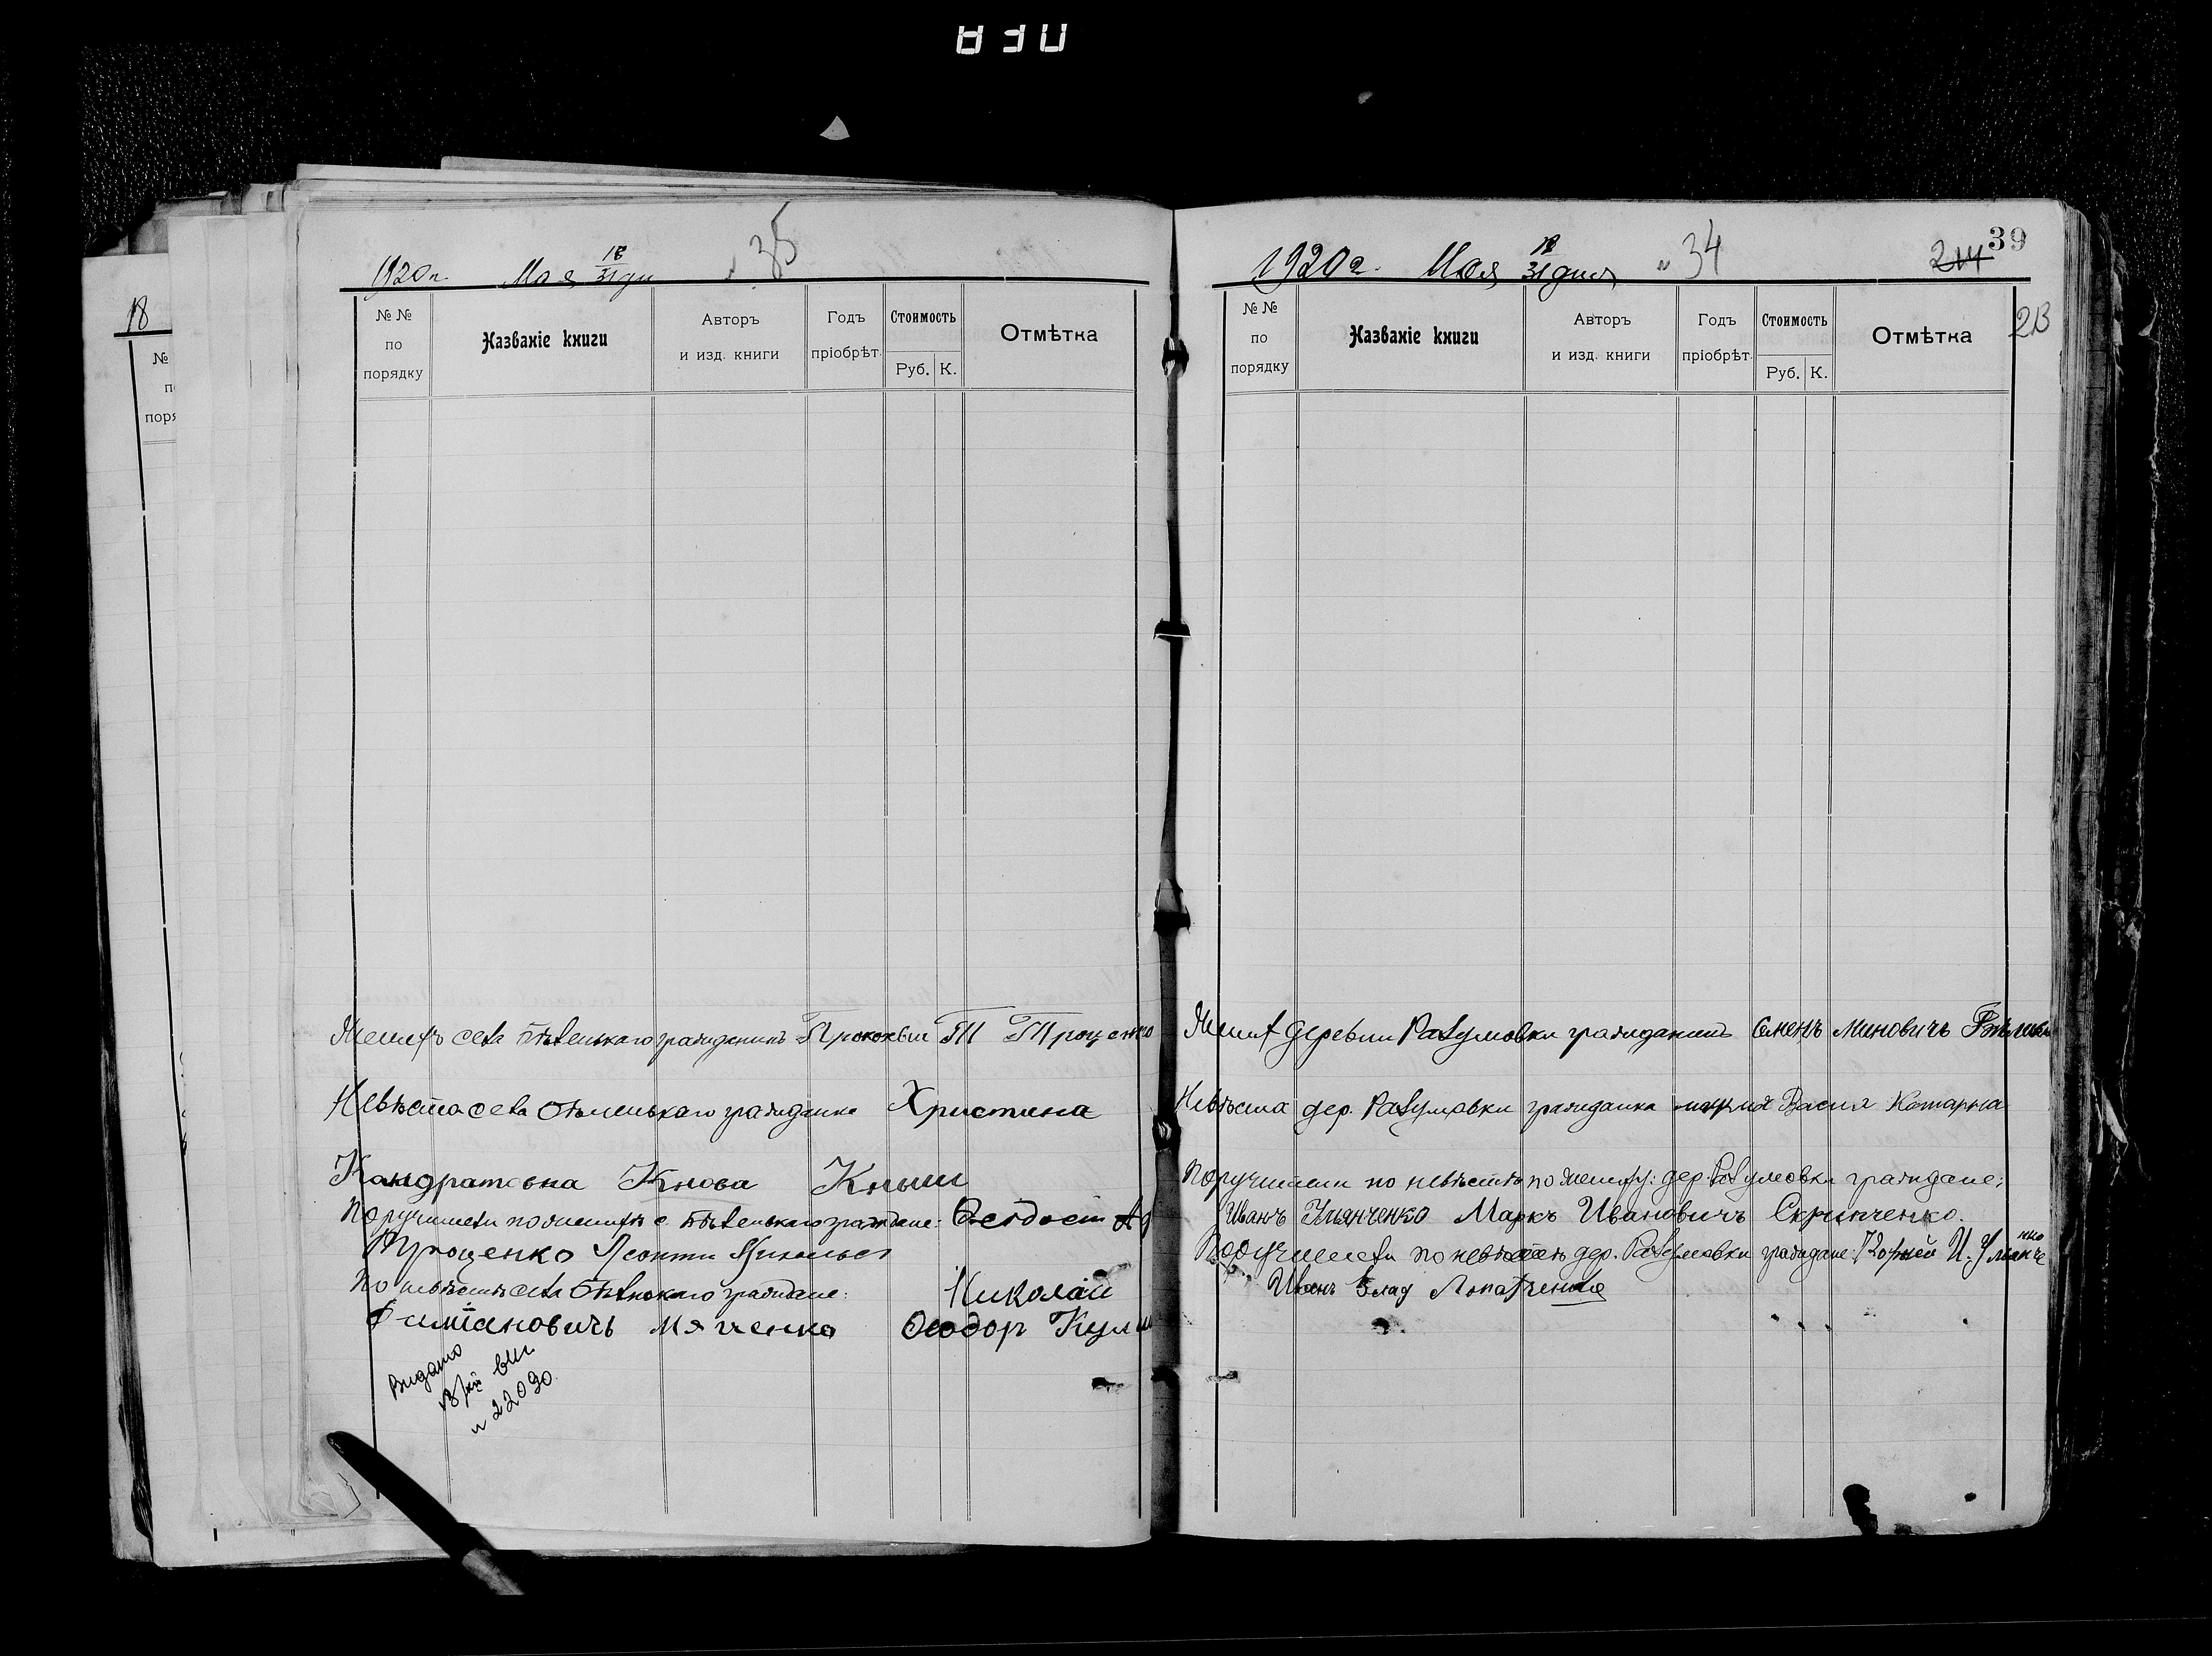 18
№
1920 г. Мая 18/31 дн № 35
№ № по порядку
Названіе книги
Авторъ и изд. книги
Годъ пріобрѣт.
Стоимость
Руб. К.
Отмѣтка
Женихъ села Бѣленькаго гражданинъ Прокофьи П Троценко
Невѣста села Бѣленькаго гражданка Христина
Кандратовна Кнова Кныш
Поручители по женихѣ с. Бѣленькаго граждане: Феодосъ
Троценко Леонти
По невѣстѣ села Бѣленькаго граждане: Николай
Мягченко Феодор Кулиш
Видано
вии
№ 22090
1920 г. Мая 18/31 дня № 34
214 39
№ № по порядку
Названіе книги
Авторъ и изд. книги
Годъ пріобрѣт.
Стоимость
Руб. К.
Отмѣтка
213
Жених деревни Разумовки гражданинъ Семенъ Миновичъ
Невѣста дер. Разумовки гражданка Мария Васил
Поручители по невѣстѣ по жениху: дер. Разумовки граждане:
Иванъ Улянченко Маркъ Ивановичъ Скрипченко.
Поручители по невѣстѣ дер. Разумовки граждане: Корней И. Улянченко
Иванъ Влад Лопатченко